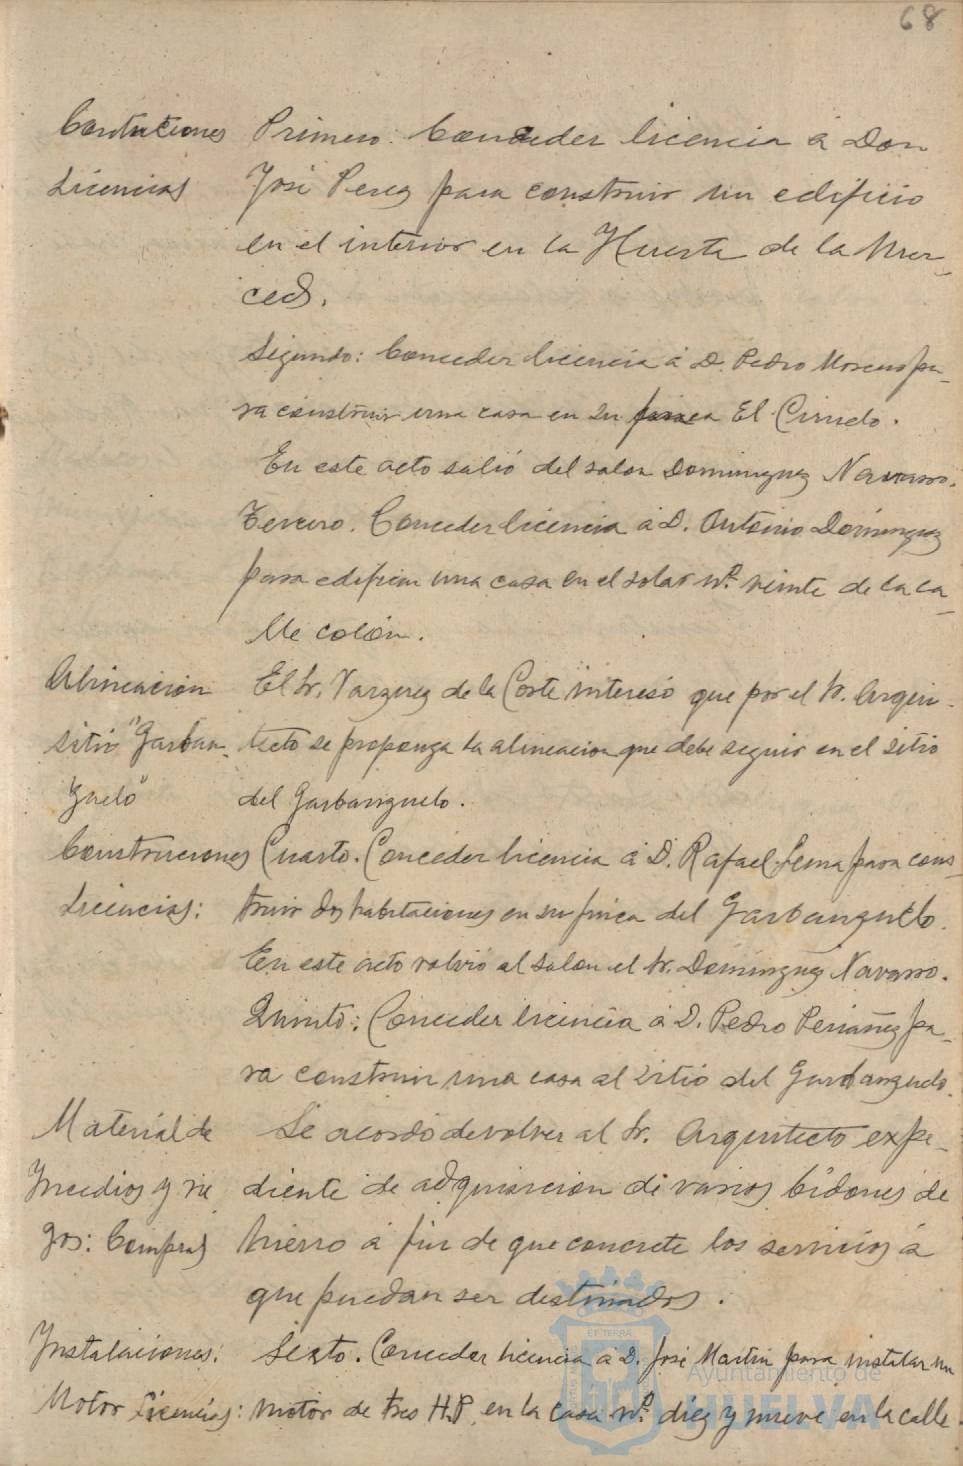 68
Contuciones Primero. Conceder licencia á Don
Licencias José Perez para construir un edificio
en el interior en la Huerta de la Mer-
ced.
Segundo: Conceder licencia á D. Pedro Moreno pa-
ra construir una casa en su finca El Ciruelo.
En este acto salió del salon Dominguez Navarro.
Tercero. Conceder licencia á D. Antonio Dominguez
para edificar una casa en el solar nº veinte de la ca-
lle colón.
Alineacion El Sr. Vazquez de la Corte interesó que por el Sr. Arqui-
sitio "Garban- tecto se proponga la alineacion que debe seguir en el sitio
zuelo" del Garbanzuelo.
Construciones Cuarto. Conceder licencia á D. Rafael Serna para cons-
Licencias: truir dos habitaciones en su finca del Garbanzuelo.
En este acto volvió al salon el Sr. Dominguez Navarro.
Quinto: Conceder licencia á D. Pedro Periañez pa-
ra construir una casa al sitio del Garbanzuelo.
Material de Se acordó devolver al Sr. Arquitecto expe-
Incedios y rie diente de adquisicion de varios bidones de
gos: Compras hierro á fin de que concrete los servicios á
que puedan ser destinados.
Instalaciones: Sexto. Conceder licencia á D. José Martin para instalar un
Motor Licencias: motor de tres H.P. en la casa nº diez y nueve en la calle
Ayuntamiento de
HUELVA